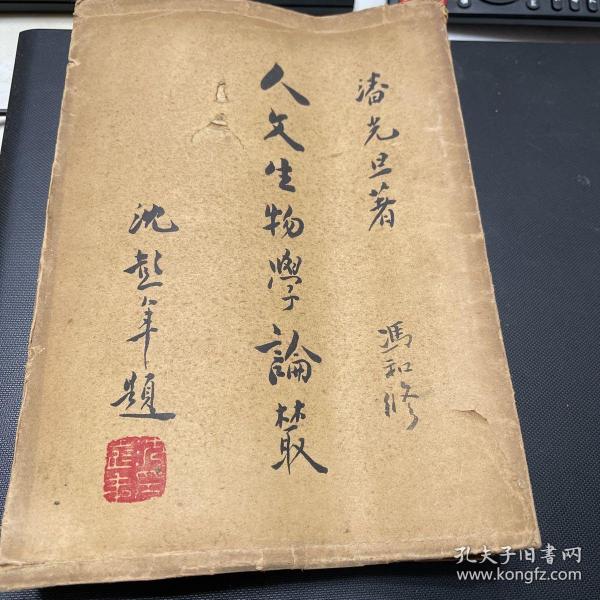 潘光旦著
人文生物學論叢
沈彭年題
馮和修
孔夫子旧书网
www.kongfz.com